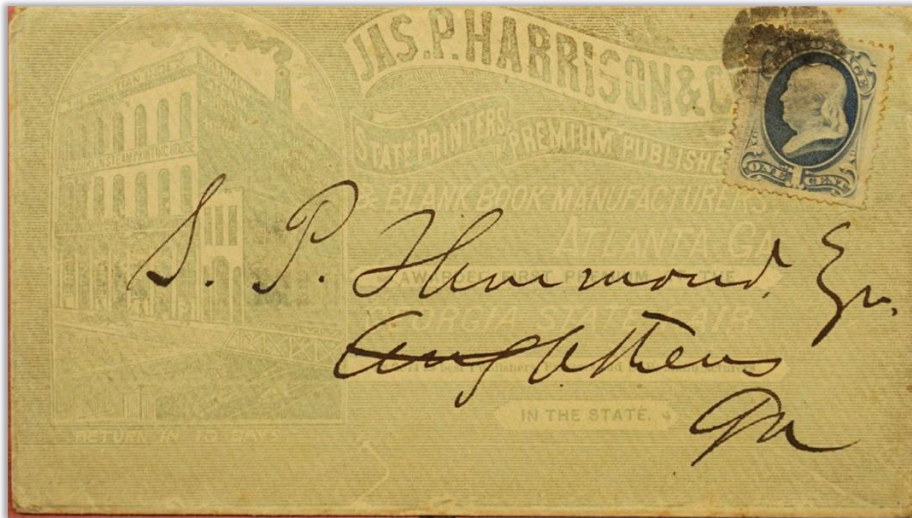 JAS. P. HARRISON & C
STATE PRINTERS, PREMIUM PUBLISHE
& BLANK BOOK MANUFACTURERS
ATLANTA, GA
AWARDED FIRST PREMIUM THE
STATE FAIR
IN THE STATE.
RETURN IN 10 DAYS
STEAM PRINTING HOUSE
S. P. Thurmond, Esq.
Athens
Ga